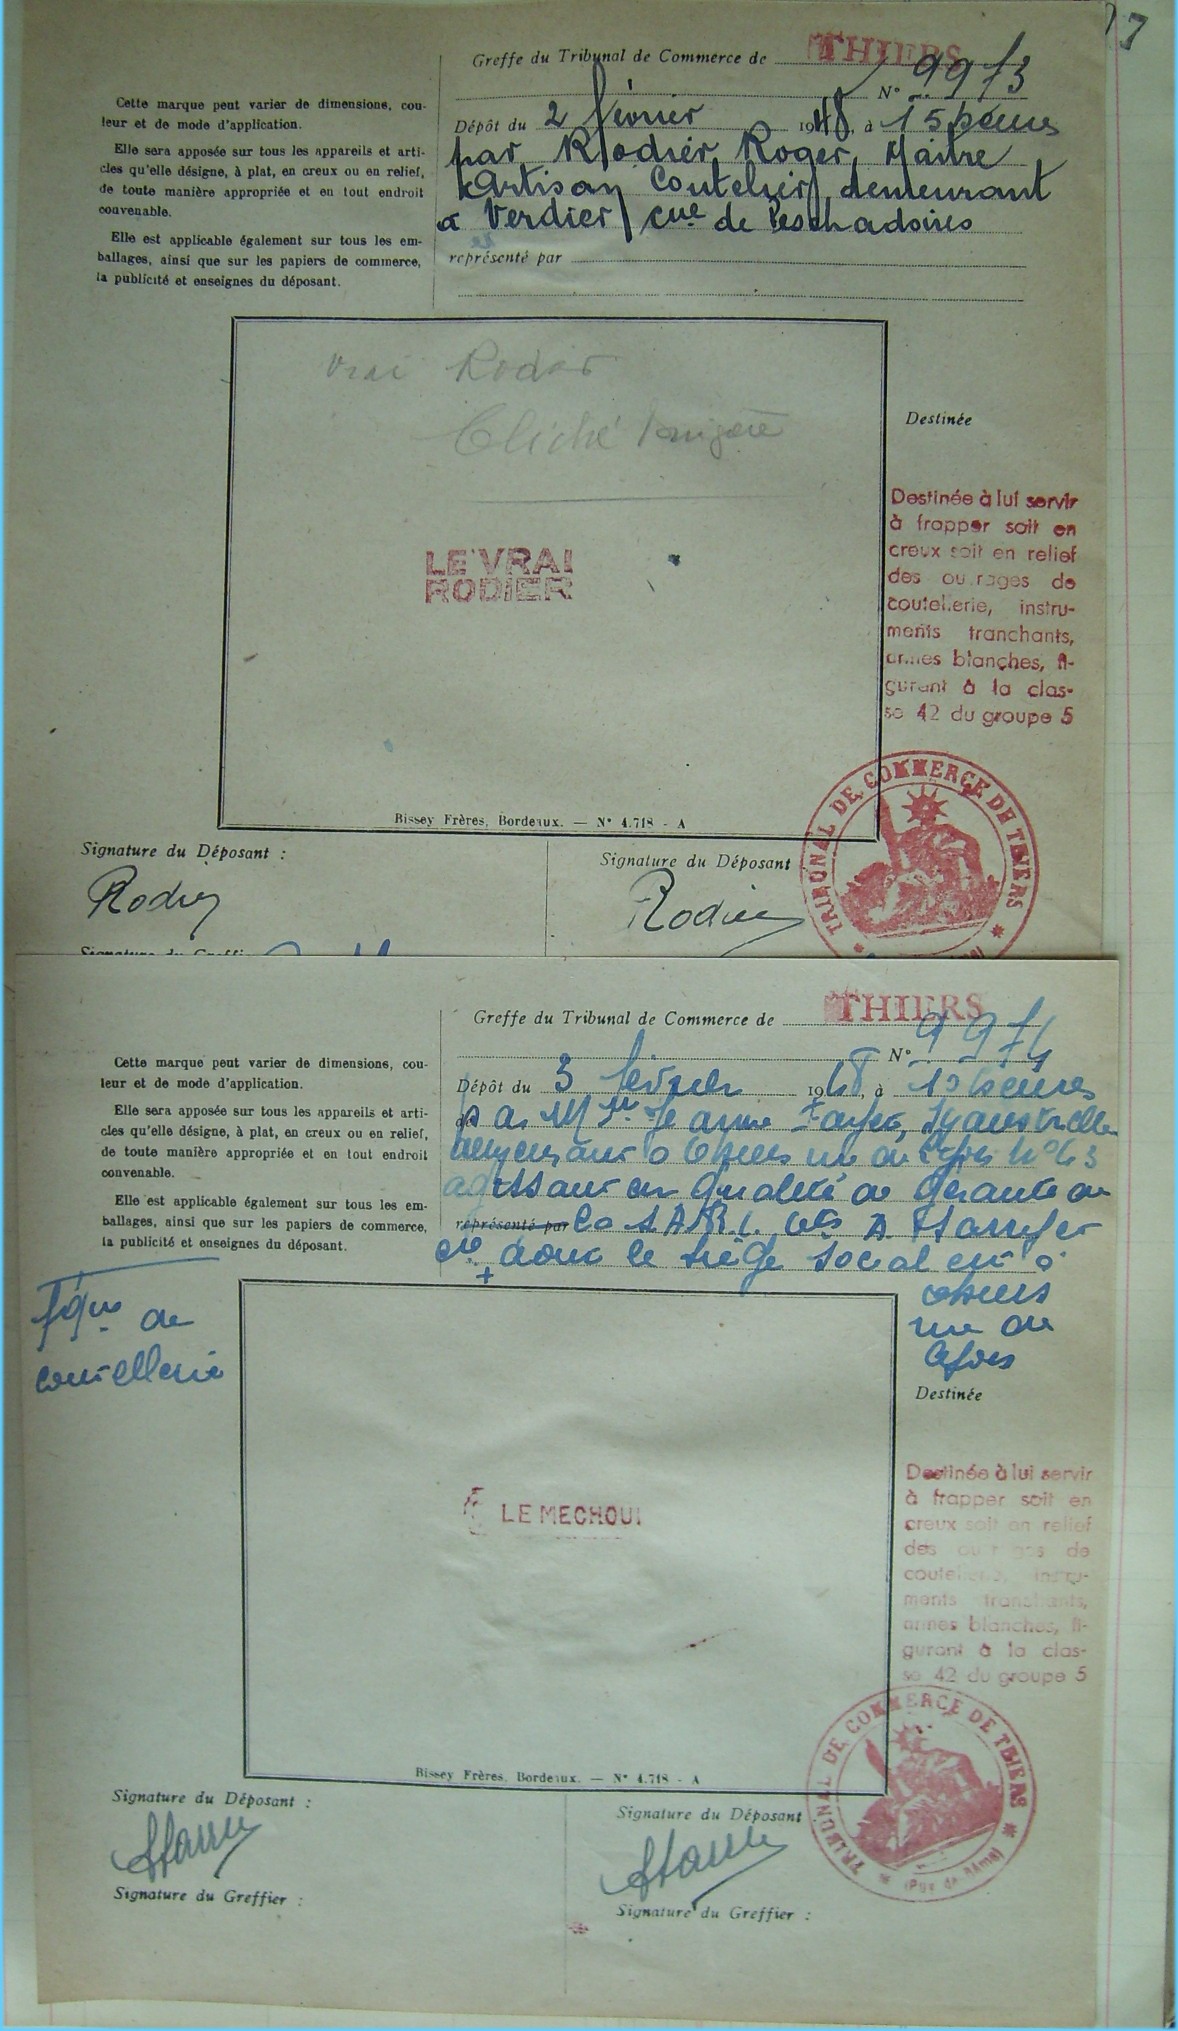 Greffe du Tribunal de Commerce de THIERS
N° 9973
Cette marque peut varier de dimensions, cou-
leur et de mode d'application.
Elle sera apposée sur tous les appareils et arti-
cles qu'elle désigne, à plat, en creux ou en relief,
de toute manière appropriée et en tout endroit
convenable.
Elle est applicable également sur tous les em-
ballages, ainsi que sur les papiers de commerce,
la publicité et enseignes du déposant.
Dépôt du 2 février 1948, à 15 heures
par Rodier Roger, Maitre
Artisan Coutelier, demeurant
à Verdier, cne de Peschadoires
représenté par
Vrai Rodier
Cliché
LE VRAI
RODIER
Destinée
Destinée à lui servir
à frapper soit en
creux soit en relief
des ouvrages de
coutellerie, instru-
ments tranchants,
armes blanches, fi-
gurant à la clas-
se 42 du groupe 5
Bissey Frères, Bordeaux. — N° 4.718 - A
TRIBUNAL DE COMMERCE DE THIERS
Signature du Déposant :
Rodier
Signature du Déposant
Rodier
Signature du Greffier
Greffe du Tribunal de Commerce de THIERS
N° 9974
Cette marque peut varier de dimensions, cou-
leur et de mode d'application.
Elle sera apposée sur tous les appareils et arti-
cles qu'elle désigne, à plat, en creux ou en relief,
de toute manière appropriée et en tout endroit
convenable.
Elle est applicable également sur tous les em-
ballages, ainsi que sur les papiers de commerce,
la publicité et enseignes du déposant.
Dépôt du 3 février 1948, à heures
par Jeanne
demeurant à Thiers rue de
agissant en qualité de gérante de
représenté par la S.A.R.L. Ets A
Cie dont le siège social est à
Thiers
rue de
Fque de
coutellerie
LE MECHOUI
Destinée
Destinée à lui servir
à frapper soit en
creux soit en relief
des ouvrages de
coutellerie, instru-
ments tranchants,
armes blanches, fi-
gurant à la clas-
se 42 du groupe 5
Bissey Frères, Bordeaux. — N° 4.718 - A
TRIBUNAL DE COMMERCE DE THIERS
(Puy de Dôme)
Signature du Déposant :
Signature du Greffier :
Signature du Déposant
Signature du Greffier :